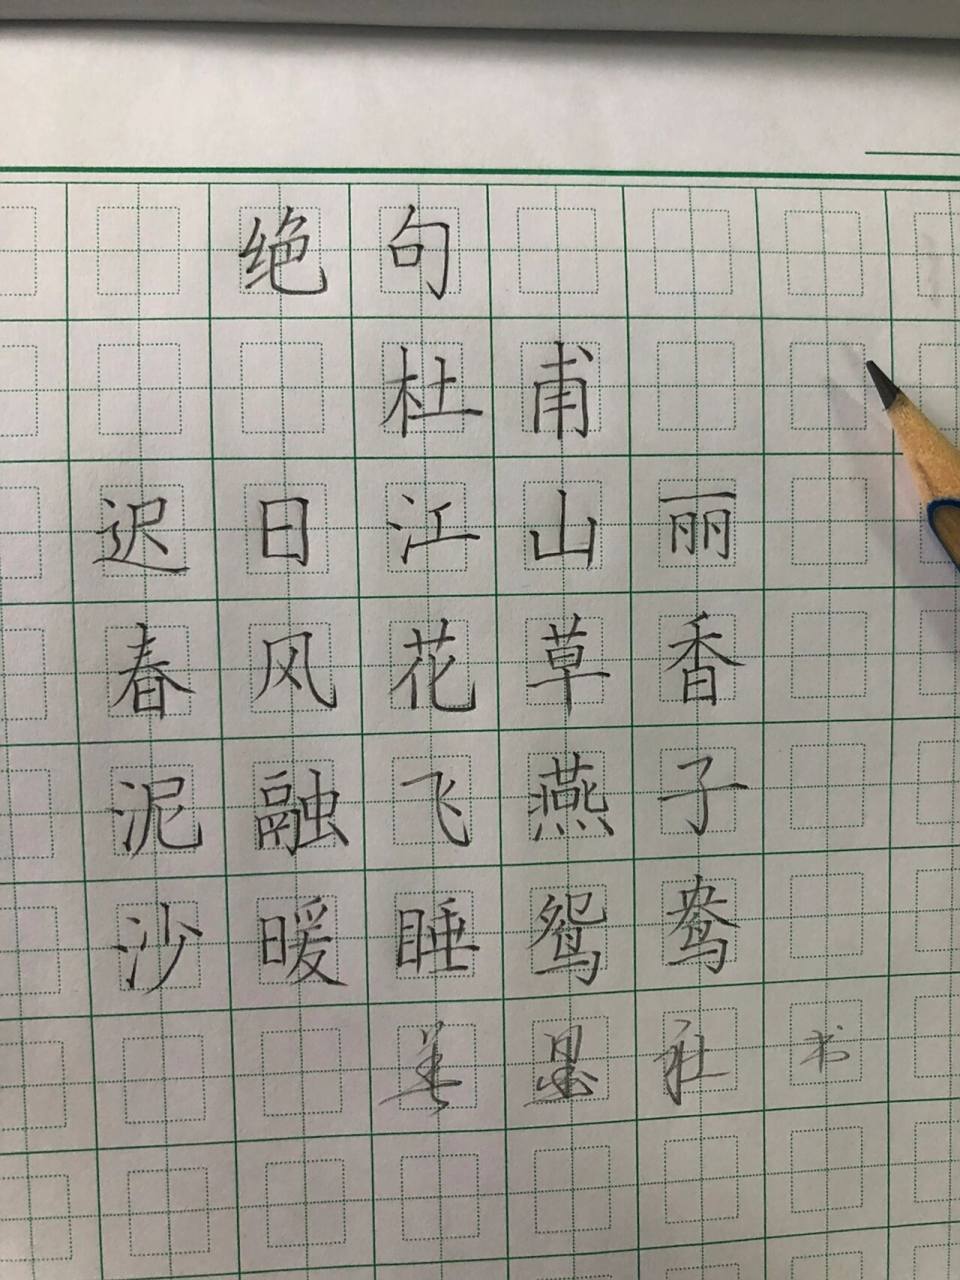 绝句
杜甫
迟日江山丽
春风花草香
泥融飞燕子
沙暖睡鸳鸯
书